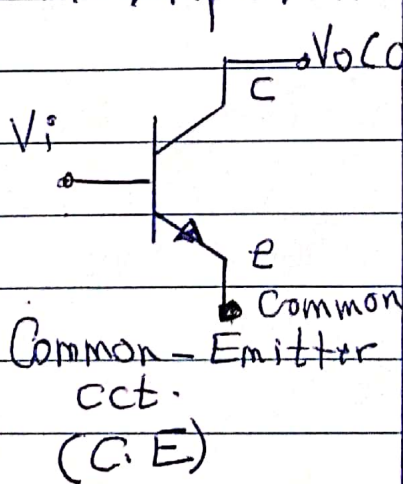 VoCC
C
Vi
e
Common
Common-Emitter
cct.
(C.E)